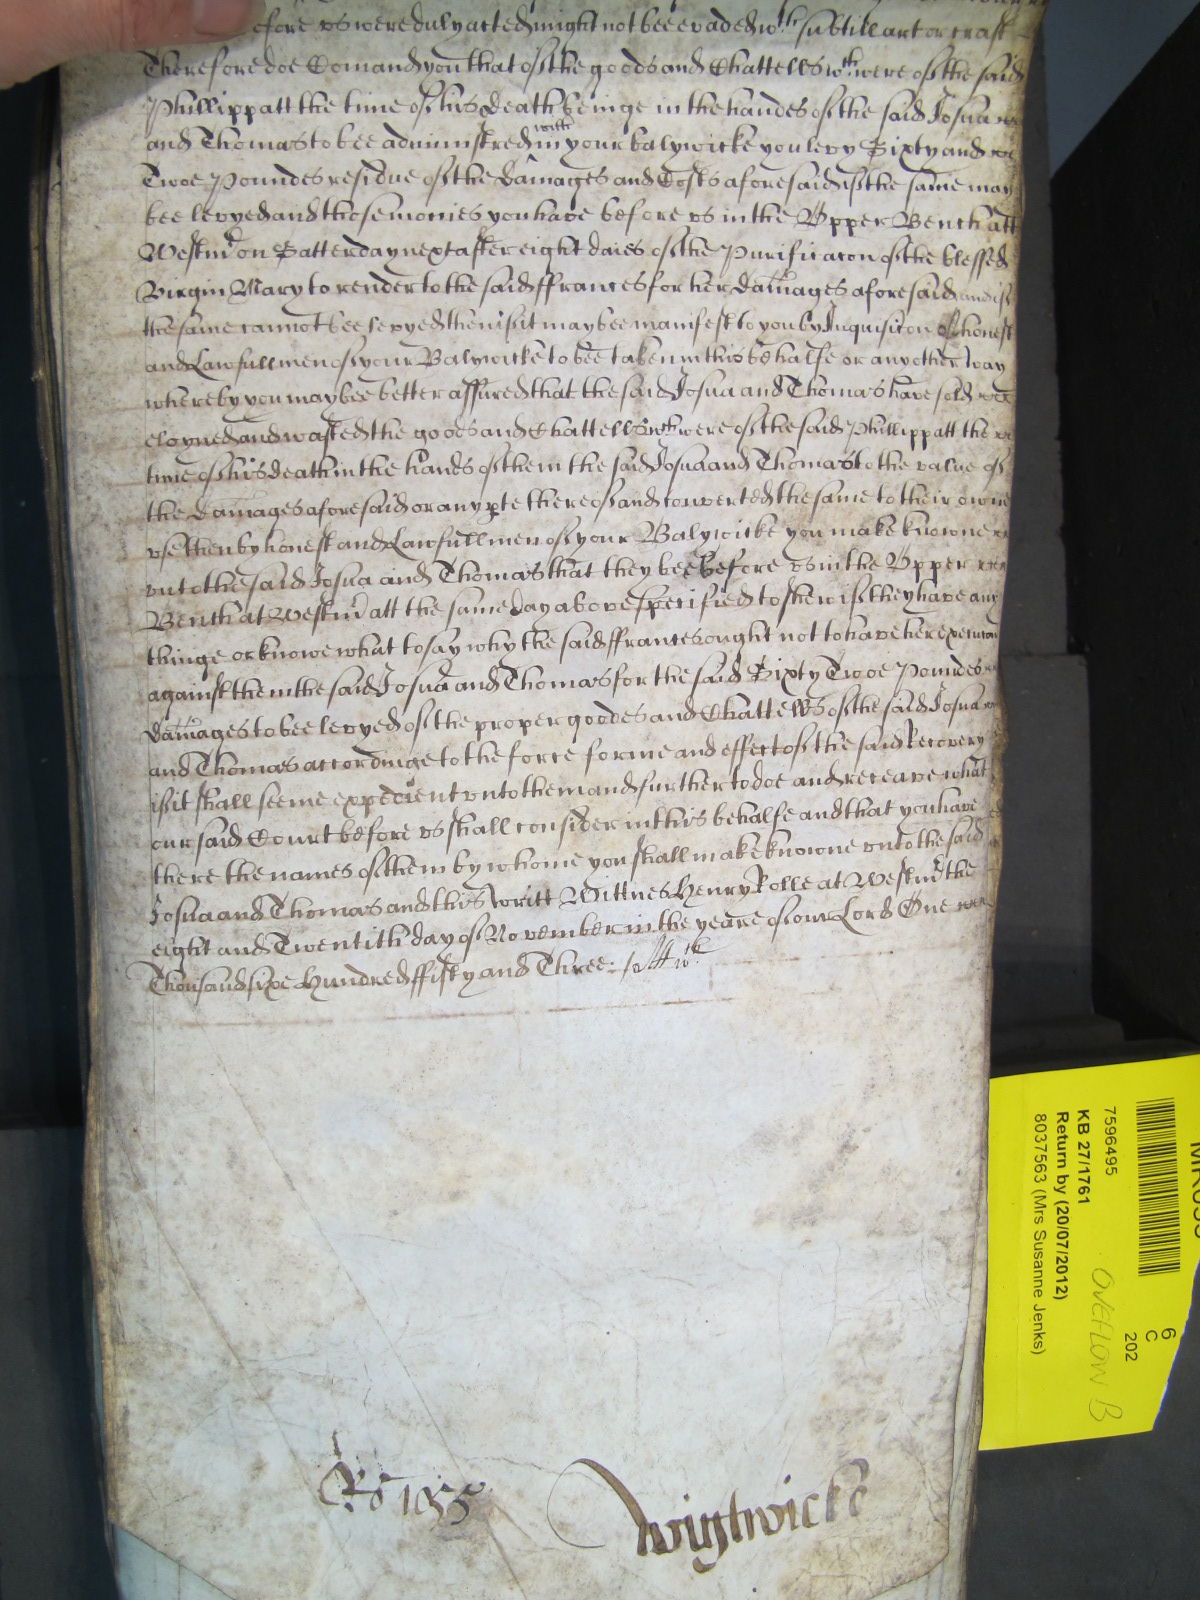 efore vs were duly acted might not bee evaded wth subtill art or craft
Therefore doe Comand you that of the goods and Chattells wch were of the said
Phillipp att the time of his death beinge in the handes of the said Josua
and Thomas to bee administred with in your balywicke you levy Sixty and
Twoe Poundes residue of the damages and Costs aforesaid if the same may
bee levyed and those monies you have before vs in the Vpper Bench att
Westmr on Satterday next after eight daies of the Purificacon of the blessed
Virgin Mary to render to the said ffrances for her damages aforesaid and if
the same cannot bee levyed then if it may bee manifest to you by Inquisicon of honest
and Lawfull men of your Balywicke to bee taken in this behalfe or any other way
whereby you may bee better assured that the said Josua and Thomas have sold
eloyned and wasted the goods and Chattells wch were of the said Phillipp att the
time of his death in the hands of them the said Josua and Thomas to the value of
the damages aforesaid or any pte thereof and converted the same to their owne
vse then by honest and Lawfull men of your Balywicke you make knowne
vnto the said Josua and Thomas that they bee before vs in the Vpper
Bench at Westmr att the same day above specified to shew if they have any
thinge or knowe what to say why the said ffrances ought not to have her execucon
against them the said Josua and Thomas for the said Sixty Twoe Poundes
damages to bee levyed of the proper goodes and Chattells of the said Josua
and Thomas accordinge to the force forme and effect of the said Recovery
if it shall seeme expedient vnto them and further to doe and receave what
our said Court before vs shall consider in this behalfe and that you have
there the names of them by whome you shall make knowne vnto the said
Josua and Thomas and this writt Wittnes Henry Rolle at Westmr the
eight and Twentith day of November in the yeare of our Lord One
Thousand sixe Hundred ffifty and Three
1655
Wightwicke
7596495
KB 27/1761
Return by (20/07/2012)
8037563 (Mrs Susanne Jenks)
OVEFLOW B
6
C
202